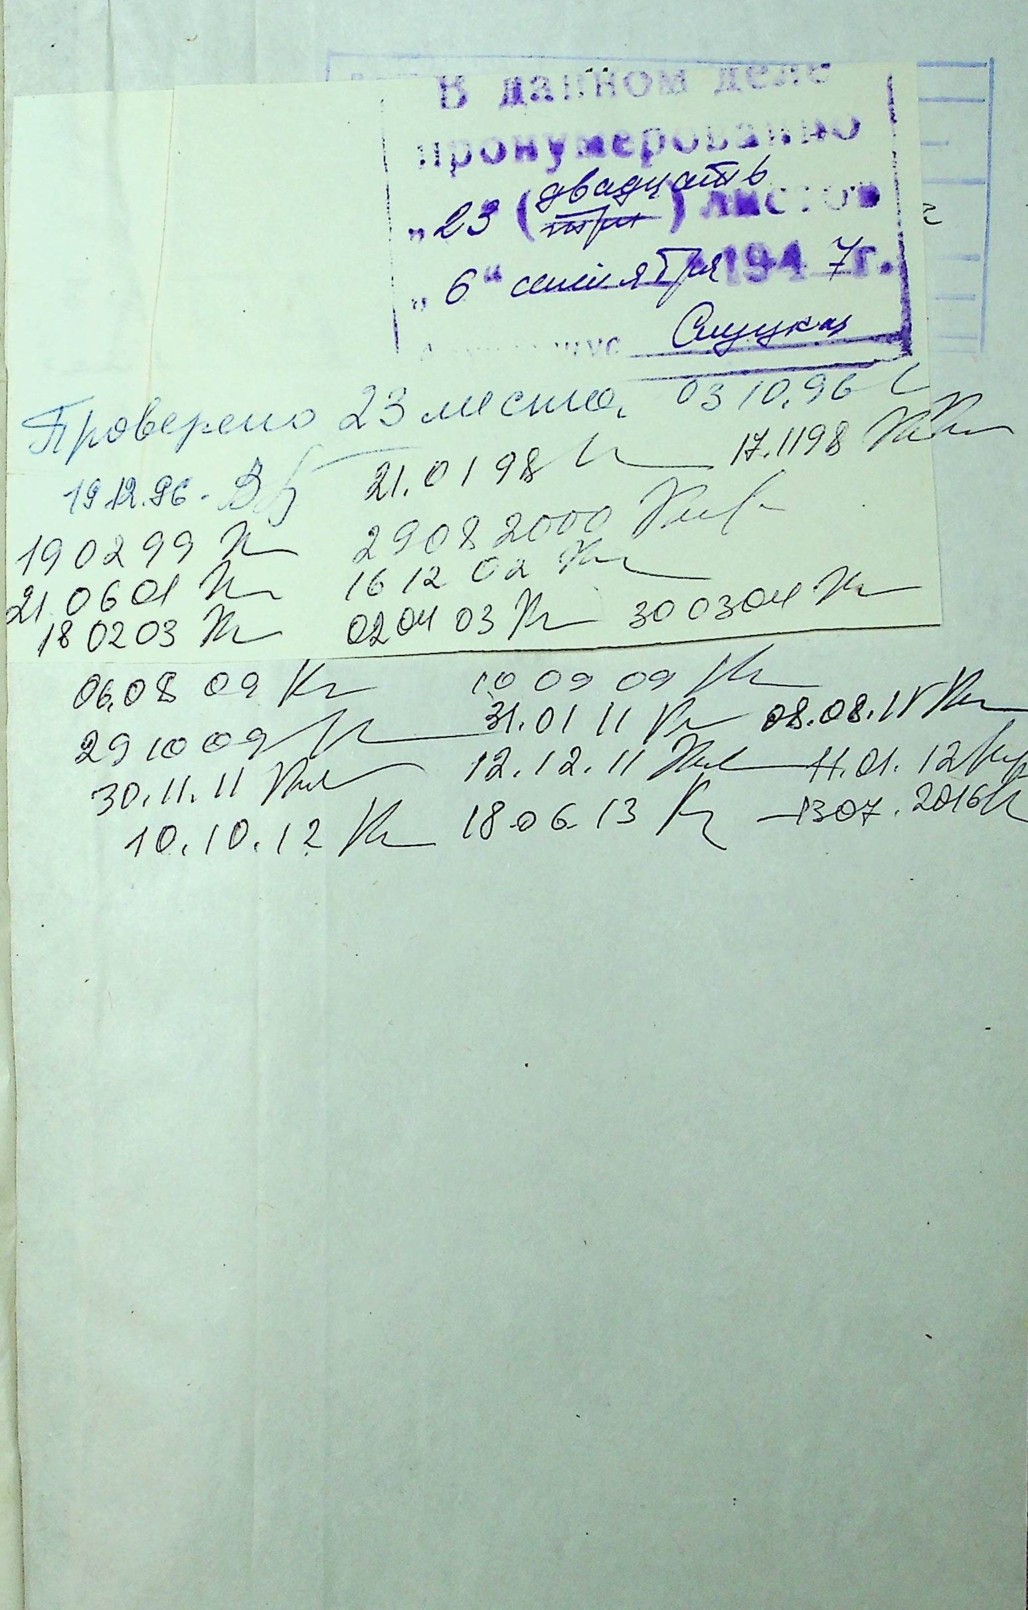 В данном деле
пронумеровано
„23 (двадцать
три) листов
„6“ сентября 1947 г.
Слуцкая
Проверено 23 листа, 03 10.96
19.12.96. 21.01 98 17.11 98
19 02 99 29 08 2000
21 06 01 16 12 02
18 02 03 02 04 03 30 03 04
06.08 09 10 09 09
29 10 09 31.01 11 08.08.11
30.11.11 12.12.11 11.01.12
10.10.12 18.06 13 13 07.2016